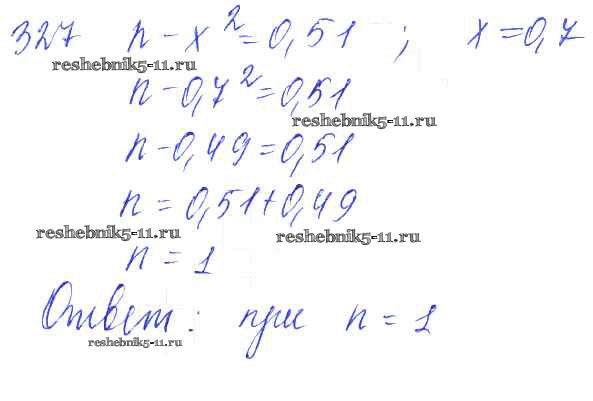 327 n - x² = 0,51 ; x = 0,7
reshebnik5-11.ru
n - 0,7² = 0,51
reshebnik5-11.ru
n - 0,49 = 0,51
n = 0,51 + 0,49
reshebnik5-11.ru reshebnik5-11.ru
n = 1
Ответ: при n = 1
reshebnik5-11.ru